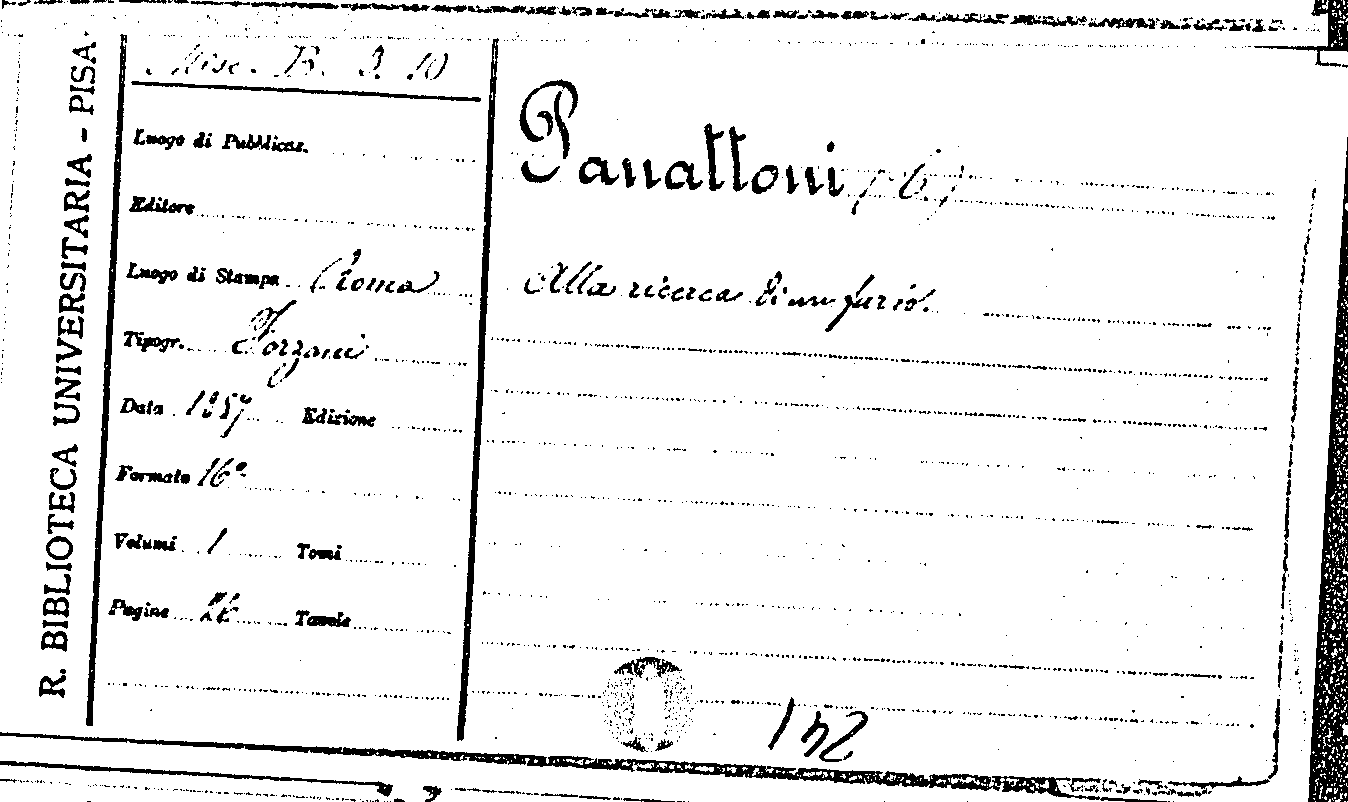 R. BIBLIOTECA UNIVERSITARIA - PISA
Misc. B. 9. 10
Luogo di Pubblicaz.
Editore
Luogo di Stampa Roma
Tipogr. Forzani
Data 1887 Edizione
Formato 16°
Volumi 1 Tomi
Pagine 26 Tavole
Panattoni
Alla ricerca di un